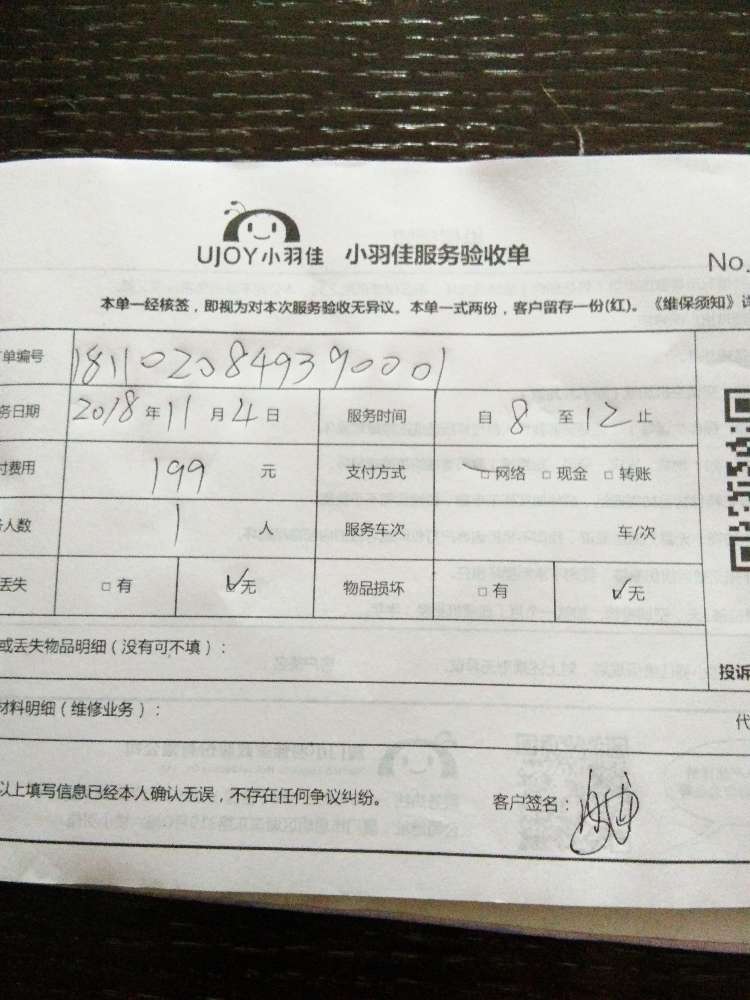 UJOY小羽佳 小羽佳服务验收单
No.
本单一经核签，即视为对本次服务验收无异议。本单一式两份，客户留存一份(红)。《维保须知》详
单编号 1811020849390001
务日期 2018年11月4日 服务时间 自8至12止
付费用 199元 支付方式 □网络 □现金 □转账
务人数 1人 服务车次 车/次
丢失 □有 ☑无 物品损坏 □有 ☑无
或丢失物品明细（没有可不填）：
投诉
材料明细（维修业务）：
代
以上填写信息已经本人确认无误，不存在任何争议纠纷。 客户签名：